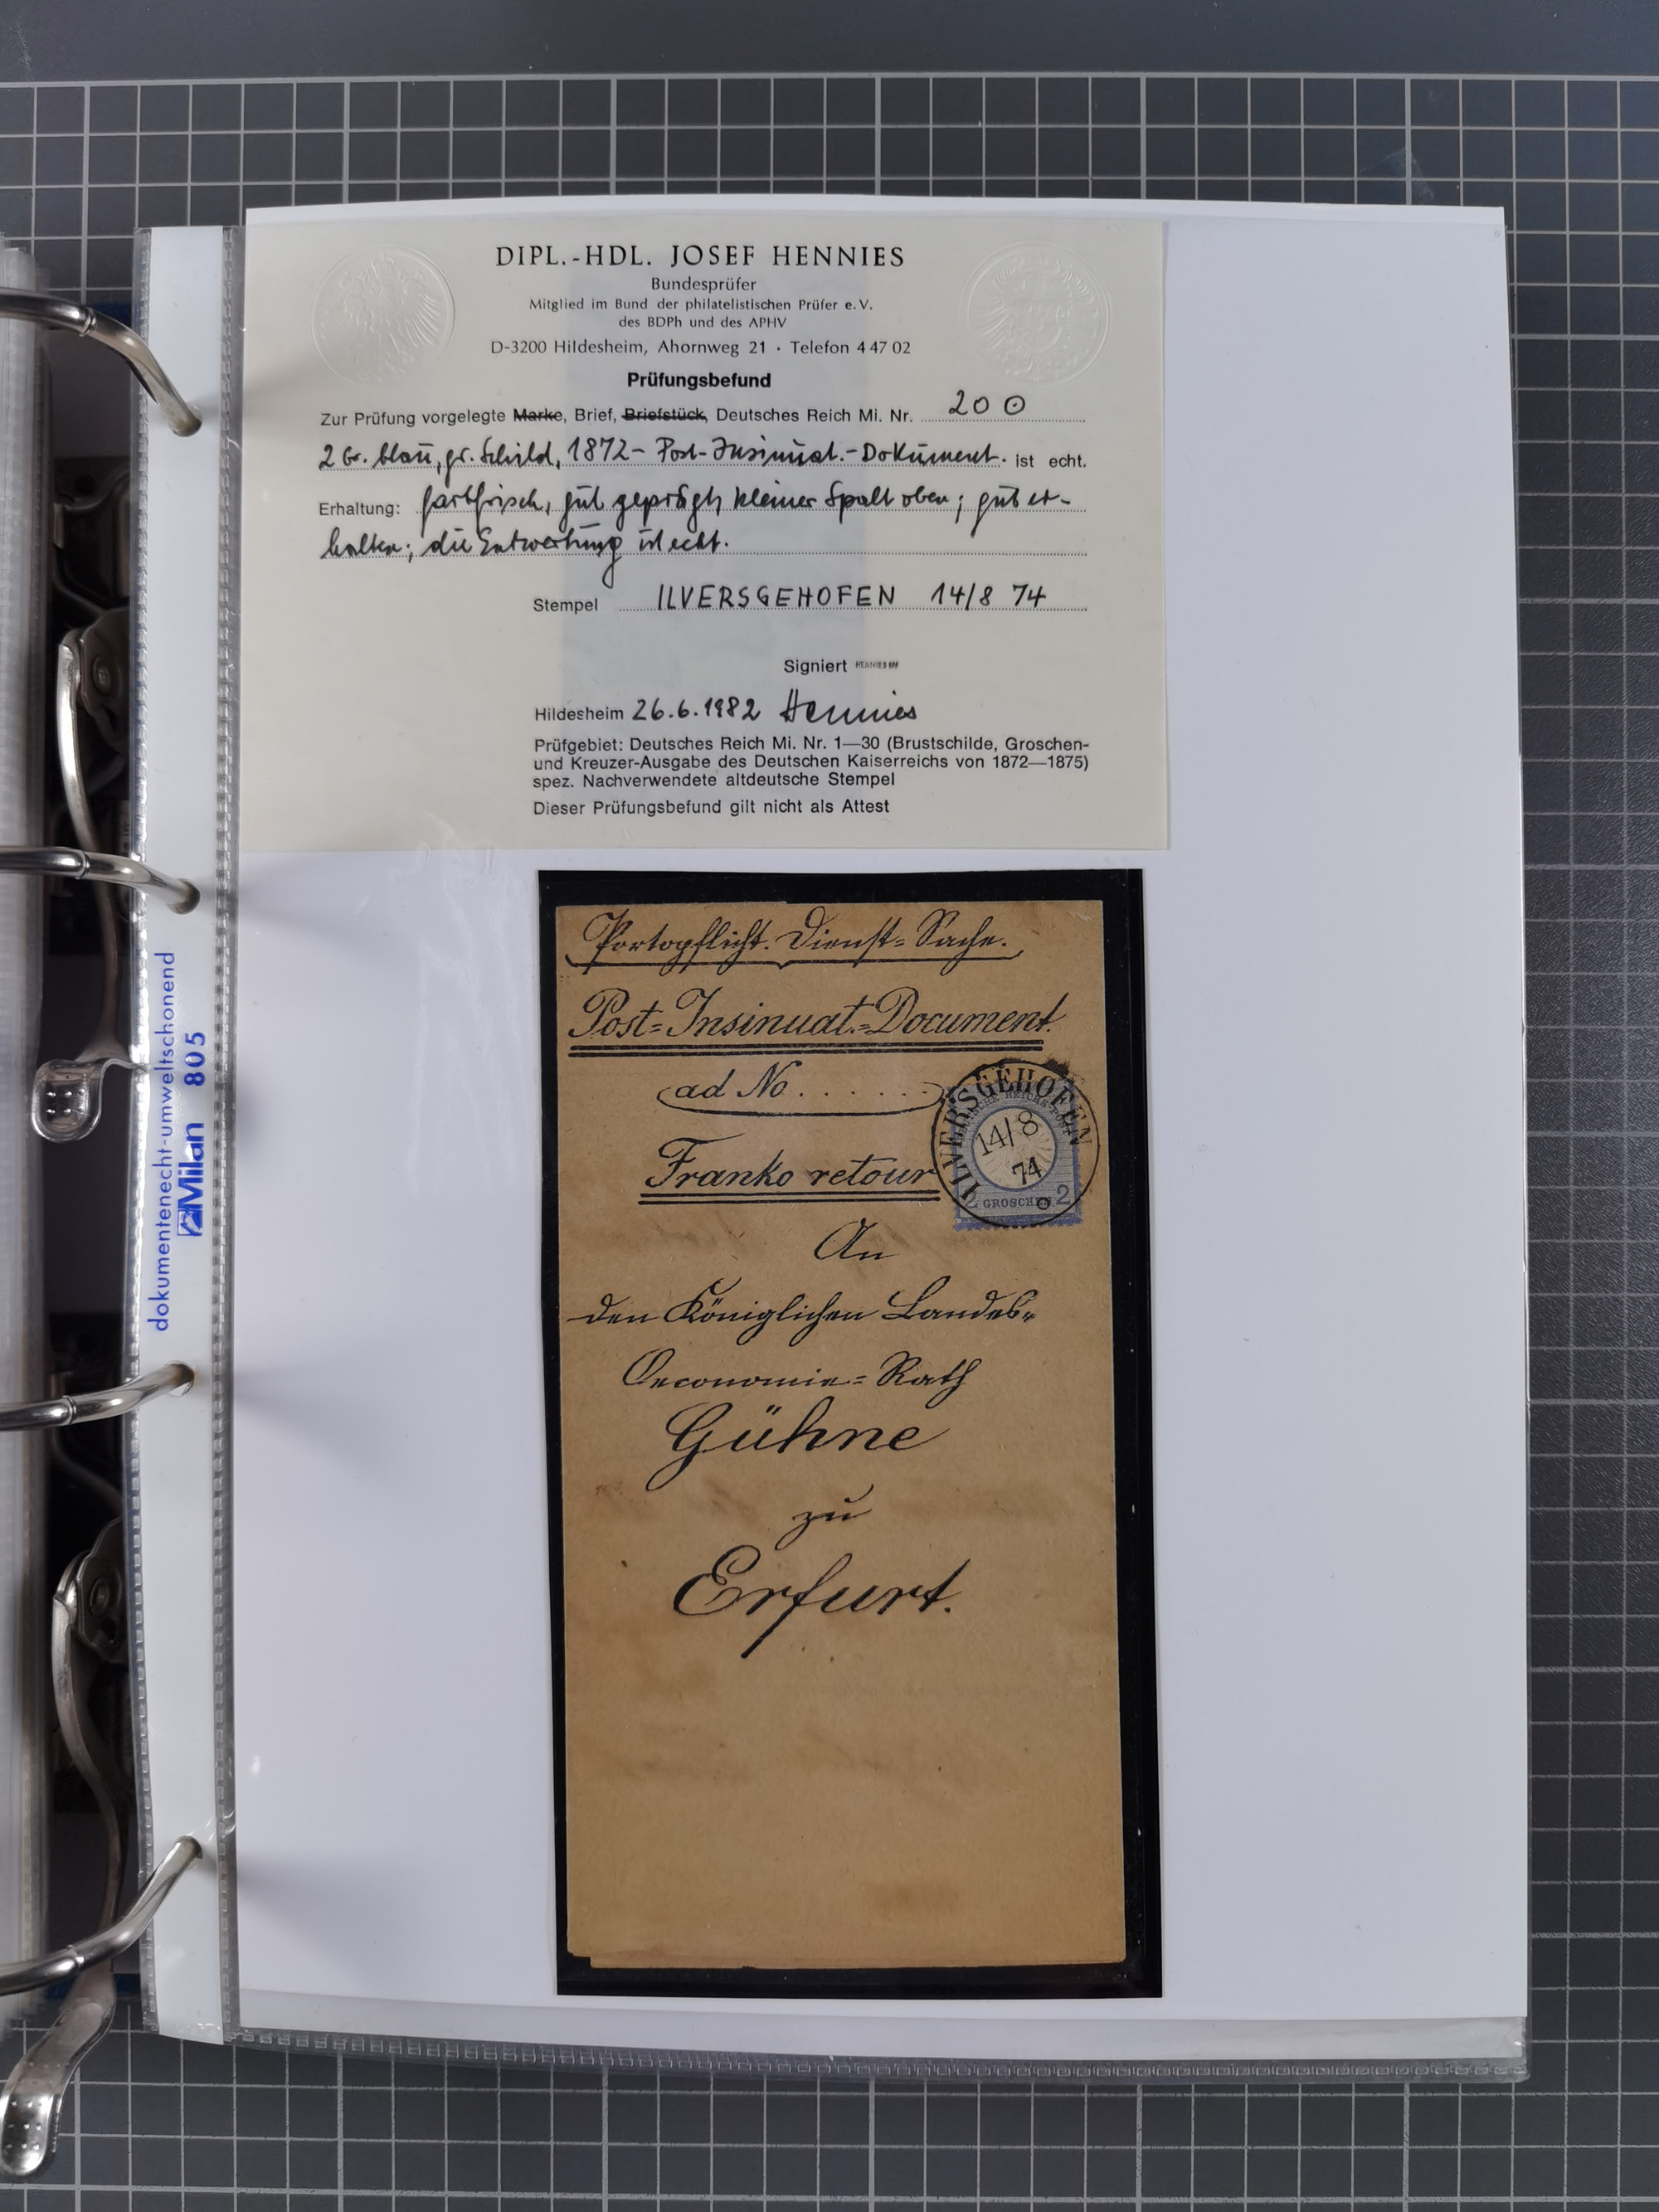 DIPL.-HDL. JOSEF HENNIES
Bundesprüfer
Mitglied im Bund der philatelistischen Prüfer e. V.
des BDPh und des APHV
D-3200 Hildesheim, Ahornweg 21 · Telefon 4 47 02
Prüfungsbefund
Zur Prüfung vorgelegte Marke, Brief, Briefstück, Deutsches Reich Mi. Nr. 20 ⊙
2 Gr. blau, gr. Schild, 1872 - Post-Insinuat.-Dokument. ist echt.
Erhaltung: farbfrisch, gut geprägt, kleiner Spalt oben; gut er-
halten; die Entwertung ist echt.
Stempel ILVERSGEHOFEN 14/8 74
Signiert HENNIES BPP
Hildesheim 26.6.1982 Hennies
Prüfgebiet: Deutsches Reich Mi. Nr. 1—30 (Brustschilde, Groschen-
und Kreuzer-Ausgabe des Deutschen Kaiserreichs von 1872—1875)
spez. Nachverwendete altdeutsche Stempel
Dieser Prüfungsbefund gilt nicht als Attest
dokumentenecht-umweltschonend
Milan 805
Portopflicht. Dienst=Sache.
Post=Insinuat.=Document.
ad No. . . . . . .
Franko retour
ILVERSGEHOFEN
14/8
74
2 GROSCHEN 2
An
den Königlichen Landes=
Oeconomie=Rath
Gühne
zu
Erfurt.